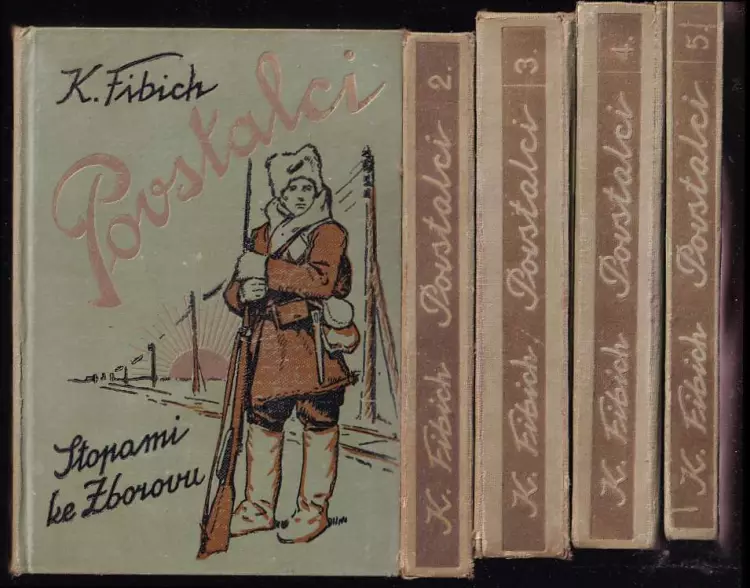 K. Fibich
Povstalci
Stopami
ke Zborovu
K. Fibich Povstalci 2.
K. Fibich Povstalci 3.
K. Fibich Povstalci 4.
K. Fibich Povstalci 5.